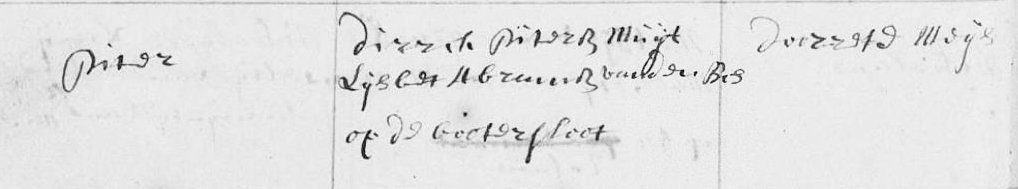 Piter
Dirrck Piterß Muijt
Lijsbet Abramß vanden Bos
op de booterfloot
Deerretd Meijs